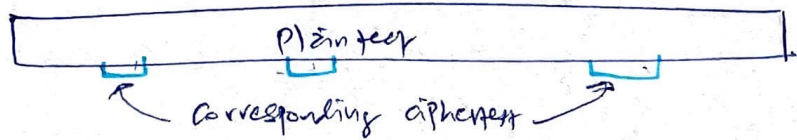 Plaintext
Corresponding ciphertext